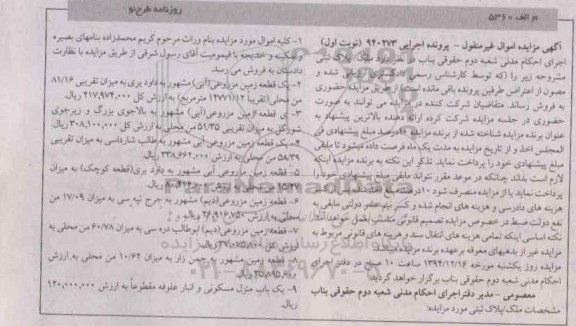 روزنامه طرح‌نو
م الف ۵۳۶۰
آگهی مزایده اموال غیرمنقول - پرونده اجرایی ۹۴۰۲۷۳ (نوبت اول)
اجرای احکام مدنی شعبه دوم حقوقی بناب در نظر دارد ملک/پلاک ثبتی
مشروحه زیر را (که توسط کارشناس رسمی دادگستری ارزیابی شده و
مصون از اعتراض طرفین پرونده باقی مانده است) از طریق مزایده حضوری
به فروش رساند. متقاضیان شرکت کننده در مزایده می توانند به صورت
حضوری در جلسه مزایده شرکت کرده ارائه دهنده بالاترین پیشنهاد به
عنوان برنده مزایده شناخته شده از برنده مزایده ۱۰درصد مبلغ پیشنهادی فی
المجلس اخذ و از تاریخ مزایده به مدت یک ماه فرصت داده میشود تا مابقی
مبلغ پیشنهادی خود را پرداخت نماید. تذکر این نکته به برنده مزایده اینکه
لازم است بداند چنانکه در موعد مقرر نتواند مابقی مبلغ پیشنهادی خود را
پرداخت نماید یا از مزایده منصرف شود ۱۰درصد
هزینه های دادرسی و هزینه های انجام شده و کسر نیم عشر دولتی مابقی به
نفع دولت ضبط در خصوص مزایده تصمیم قانونی مناسب بعمل خواهد آمد
نکته اساسی اینکه تمامی هزینه های انتقال سند و هزینه های قانونی مربوط به
مزایده غیر از بدهیهای معوقه برعهده برنده مزایده
مزایده روز یکشنبه مورخه ۱۳۹۴/۱۲/۱۶ ساعت ۱۰ صبح در دفتر اجرای
احکام مدنی شعبه دوم حقوقی بناب برگزار خواهد گردید
معصومی - مدیر دفتر اجرای احکام مدنی شعبه دوم حقوقی بناب
مشخصات ملک/پلاک ثبتی مورد مزایده:
۱- کلیه اموال مورد مزایده بنام وراث مرحوم کریم محمدزاده بنامهای بصیره
و سکینه و خدیجه با قیمومیت آقای رسول شرقی از طریق مزایده با نظارت
دادستان به فروش می رسد.
۲- یک قطعه زمین مزروعی(آبی) مشهور به داود پری به میزان تقریبی ۸۱/۱۶
من محلی (تقریباً مترمربع) به ارزش کل ۴۱۷,۹۷۴,۰۰۰ ریال.
۳- ی قطعه زمین مزروعی(آبی) مشهور به بالاجوی بزرگ و زیرجوی
شورگل به میزان تقریبی ۵۱/۳۵ من محلی به ارزش کل ۳۰۸,۱۰۰,۰۰۰ ریال.
۴- یک قطعه زمین مزروعی آبی مشهور به طالب شاردباسی به میزان تقریبی
۵۸/۳۹ من محلی به ارزش ۳۳۸,۶۶۲,۰۰۰ ریال.
۵- قطعه زمین مزروعی آبی مشهور به داود بری(قطعه کوچک) به میزان
۶- قطعه زمین مزروعی(دیم) مشهور به جرج تپه سی به میزان ۱۷/۰۹ من
محلی به ارزش ریال.
۷- قطعه زمین مزروعی (دیم) ابوطالب دره سی به میزان ۶۰/۷۸ من محلی به
ارزش کل ریال.
۸- قطعه زمین مشهور به چمن زار به میزان ۱۰/۶۲ من محلی به ارزش
ریال.
۹- یک باب منزل مسکونی و انبار علوفه مقطوعاً به ارزش ۱۲۰,۰۰۰,۰۰۰
ریال.